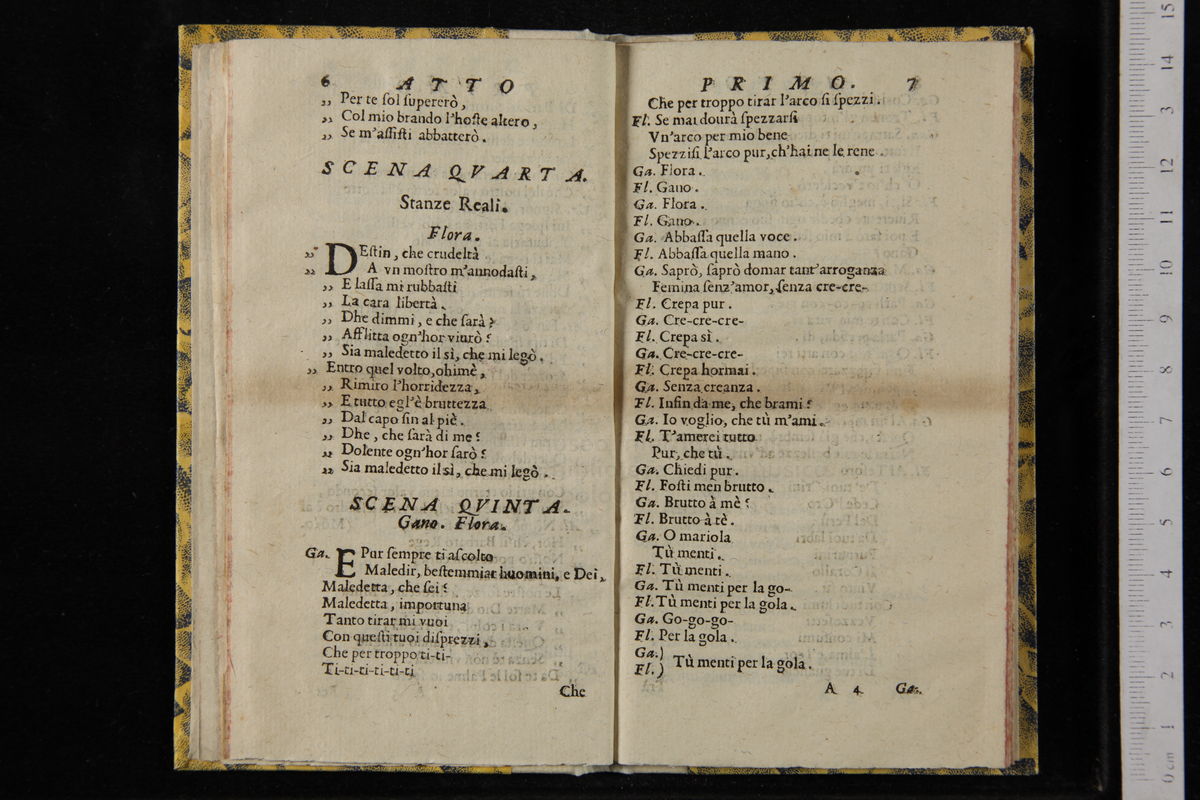 6 ATTO
„ Per te ſol ſupererò,
„ Col mio brando l'hoſte altero,
„ Se m'aſſiſti abbatterò.
SCENA QVARTA.
Stanze Reali.
Flora.
„ DEſtin, che crudeltà
„ A vn moſtro m'annodaſti,
„ E laſſa mi rubbaſti
„ La cara libertà.
„ Dhe dimmi, e che ſarà?
„ Afflitta ogn'hor viurò?
„ Sia maledetto il sì, che mi legò.
„ Entro quel volto, ohimè,
„ Rimiro l'horridezza,
„ E tutto egl'è bruttezza
„ Dal capo ſin al piè.
„ Dhe, che ſarà di me?
„ Dolente ogn'hor ſarò?
„ Sia maledetto il sì, che mi legò.
SCENA QVINTA.
Gano. Flora.
Ga. E Pur ſempre ti aſcolto
Maledir, beſtemmiar huomini, e Dei,
Maledetta, che ſei?
Maledetta, importuna
Tanto tirar mi vuoi
Con queſti tuoi diſprezzi,
Che per troppo ti-ti-
Ti-ti-ti-ti-ti-ti
Che
PRIMO. 7
Che per troppo tirar l'arco ſi ſpezzi.
Fl. Se mai dourà ſpezzarſi
Vn'arco per mio bene
Spezziſi l'arco pur, ch'hai ne le rene.
Ga. Flora.
Fl. Gano.
Ga. Flora.
Fl. Gano.
Ga. Abbaſſa quella voce.
Fl. Abbaſſa quella mano.
Ga. Saprò, ſaprò domar tant'arroganza
Femina ſenz'amor, ſenza cre-cre-
Fl. Crepa pur.
Ga. Cre-cre-cre-
Fl. Crepa sì.
Ga. Cre-cre-cre-
Fl. Crepa hormai.
Ga. Senza creanza.
Fl. Infin da me, che brami?
Ga. Io voglio, che tù m'ami.
Fl. T'amerei tutto
Pur, che tù.
Ga. Chiedi pur.
Fl. Foſti men brutto.
Ga. Brutto à mè?
Fl. Brutto à tè.
Ga. O mariola
Tù menti.
Fl. Tù menti.
Ga. Tù menti per la go-
Fl. Tù menti per la gola.
Ga. Go-go-go-
Fl. Per la gola.
Ga.)
Fl.) Tù menti per la gola.
A 4. Ga.
15
14
13
12
11
10
9
8
7
6
5
4
3
2
1
0 cm